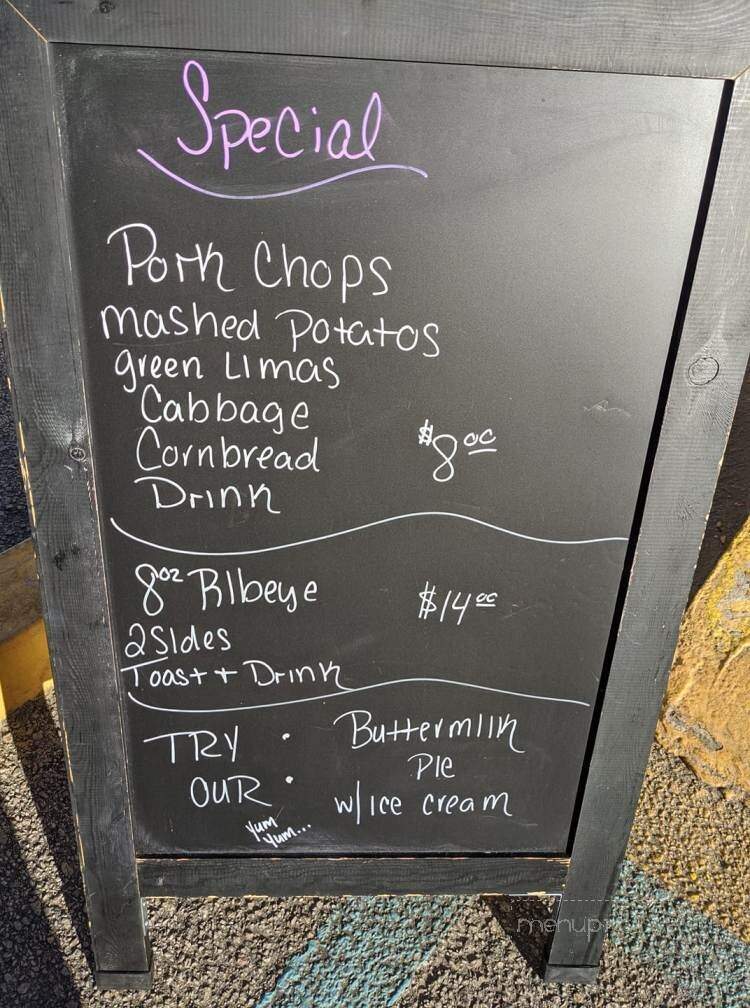 Special
Pork Chops
mashed Potatos
green Limas
Cabbage
Cornbread $8.00
Drink
8oz Ribeye $14.00
2 Sides
Toast + Drink
TRY : Buttermilk
OUR Pie
w/ice cream
Yum
Yum...
menupi